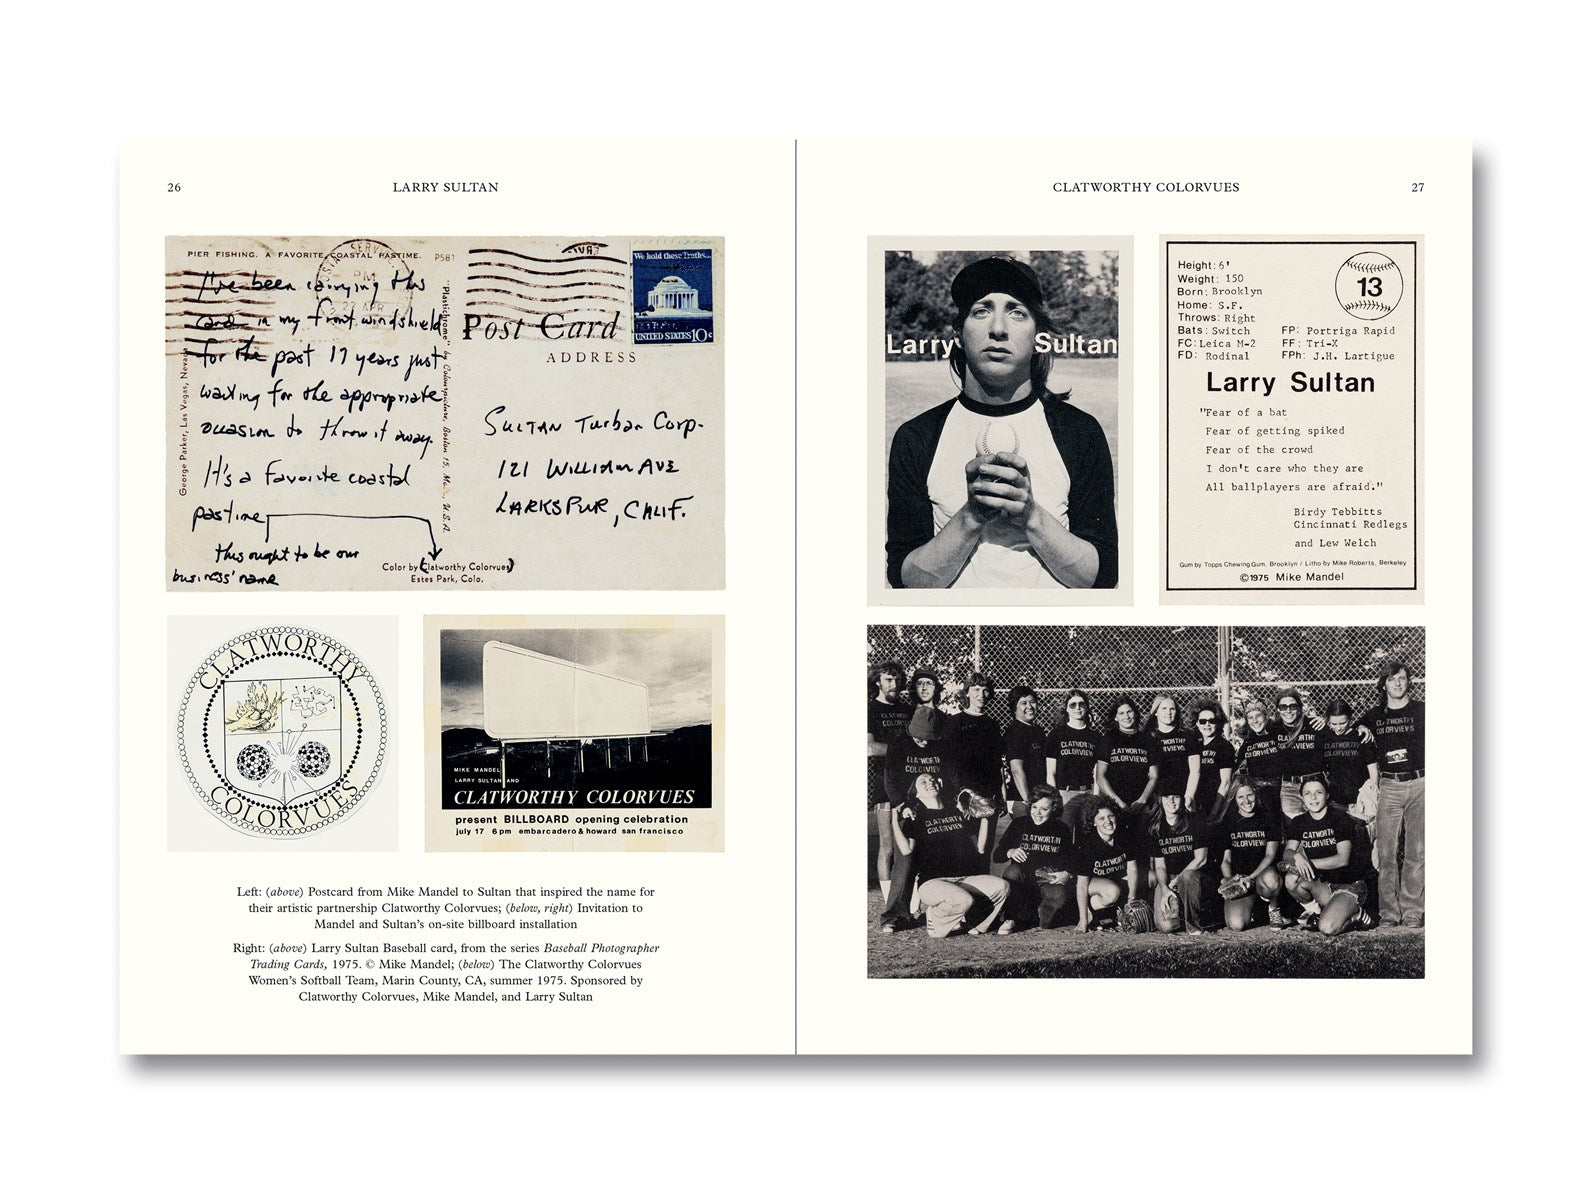 26
LARRY SULTAN
PIER FISHING. A FAVORITE COASTAL PASTIME.
P581
I've been carrying this
card in my front windshield
for the past 17 years just
waiting for the appropriate
occasion to throw it away.
It's a favorite coastal
pastime
this ought to be our
business' name
George Parker, Las Vegas, Nevada
"Plastichrome" by Colourpicture, Boston 15, Mass., U.S.A.
Color by Clatworthy Colorvues
Estes Park, Colo.
PM
27 APR
We hold these Truths...
UNITED STATES 10c
Post Card
ADDRESS
SULTAN Turban Corp.
121 WILLIAM AVE
LARKSPUR, CALIF.
CLATWORTHY
COLORVUES
MIKE MANDEL
LARRY SULTAN AND
CLATWORTHY COLORVUES
present BILLBOARD opening celebration
july 17 6pm embarcadero & howard san francisco
Left: (above) Postcard from Mike Mandel to Sultan that inspired the name for
their artistic partnership Clatworthy Colorvues; (below, right) Invitation to
Mandel and Sultan's on-site billboard installation
Right: (above) Larry Sultan Baseball card, from the series Baseball Photographer
Trading Cards, 1975. © Mike Mandel; (below) The Clatworthy Colorvues
Women's Softball Team, Marin County, CA, summer 1975. Sponsored by
Clatworthy Colorvues, Mike Mandel, and Larry Sultan
CLATWORTHY COLORVUES
27
Larry Sultan
Height: 6'
Weight: 150
Born: Brooklyn
Home: S.F.
Throws: Right
Bats: Switch
FC: Leica M-2
FD: Rodinal
FP: Portriga Rapid
FF: Tri-X
FPh: J.H. Lartigue
13
Larry Sultan
"Fear of a bat
Fear of getting spiked
Fear of the crowd
I don't care who they are
All ballplayers are afraid."
Birdy Tebbitts
Cincinnati Redlegs
and Lew Welch
Gum by Topps Chewing Gum, Brooklyn / Litho by Mike Roberts, Berkeley
©1975 Mike Mandel
CLATWORTHY
COLORVIEWS